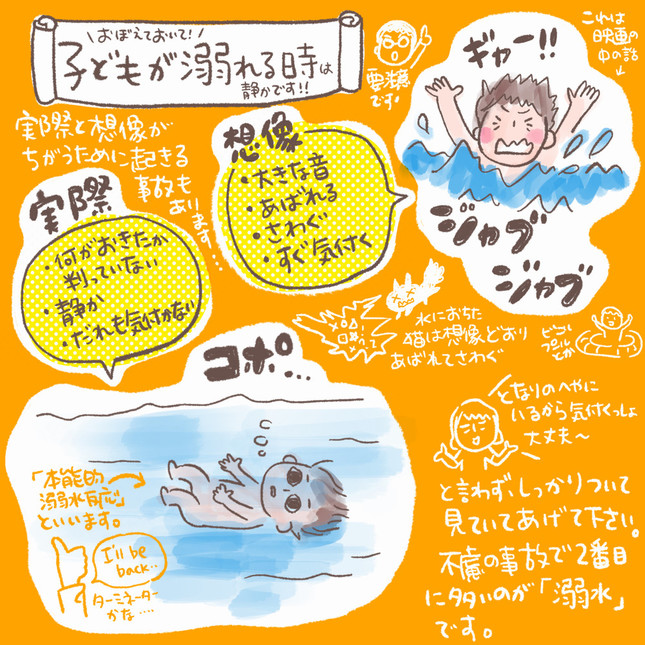 \おぼえておいて!/
子どもが溺れる時は
静かです!!
要注意
です!
これは
映画の
中の話
↓
ギャー!!
実際と想像が
ちがうために起きる
事故も
あります…
想像
・大きな音
・あばれる
・さわぐ
・すぐ気付く
実際
・何がおきたか
判っていない
・静か
・だれも気付かない
ジャブ
ジャブ
水におちた
猫は想像どおり
あばれてさわぐ
プールとか
コポ…
「本能的
溺水反応」
といいます。
I'll be
back..
ターミネーター
かな….
となりのへやに
いるから気付くっしょ
大丈夫〜
と言わず、しっかりついて
見ていてあげて下さい。
不慮の事故で2番目
に多いのが「溺水」
です。